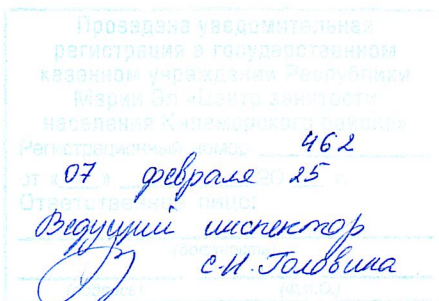 Проведена уведомительная
регистрация в государственном
казенном учреждении Республики
Марий Эл «Центр занятости
населения Килемарского района»
Регистрационный номер 462
от «07» февраля 2025 г.
Ответственное лицо:
Ведущий инспектор
(должность)
С.Н. Головина